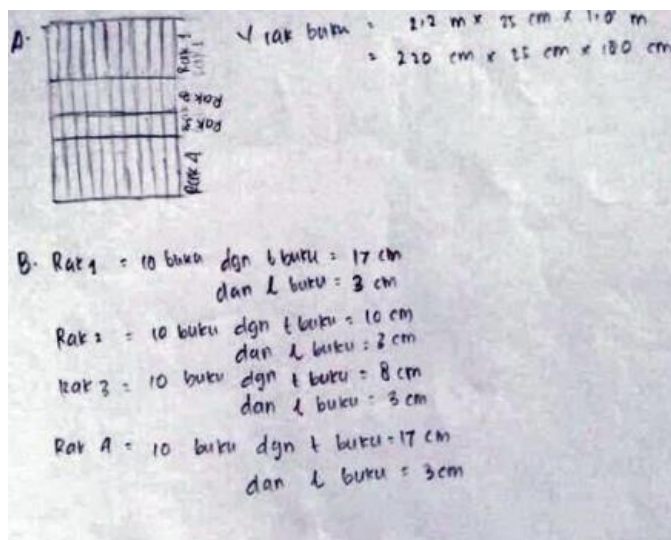 A.
V rak buku = 2,2 m x 25 cm x 1,8 m
= 220 cm x 25 cm x 180 cm
Rak 1
Rak 2
Rak 3
Rak 4
B. Rak 1 = 10 buku dgn t buku = 17 cm
dan l buku = 3 cm
Rak 2 = 10 buku dgn t buku = 10 cm
dan l buku = 3 cm
Rak 3 = 10 buku dgn t buku = 8 cm
dan l buku = 3 cm
Rak 4 = 10 buku dgn t buku = 17 cm
dan l buku = 3 cm